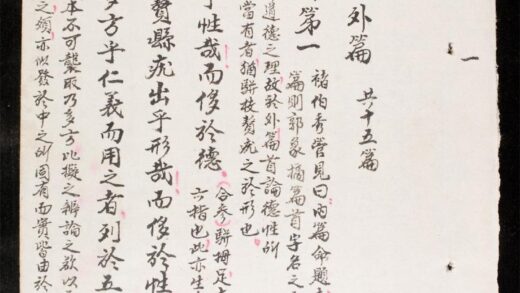 一
外篇 共十五篇
第一
褚伯秀管見曰內篇命題
篇則郭象摘篇首字名之
道德之理故於外篇首論德性所
當有者猶駢枝贅疣之於形也
乎性哉而侈於德
合參駢拇足
六指也此亦生
贅縣疣出乎形哉而侈於性
多方乎仁義而用之者列於五
本不可襲取乃多方比擬之辨論之欲以
之類亦似發於中之所固有而實皆由於